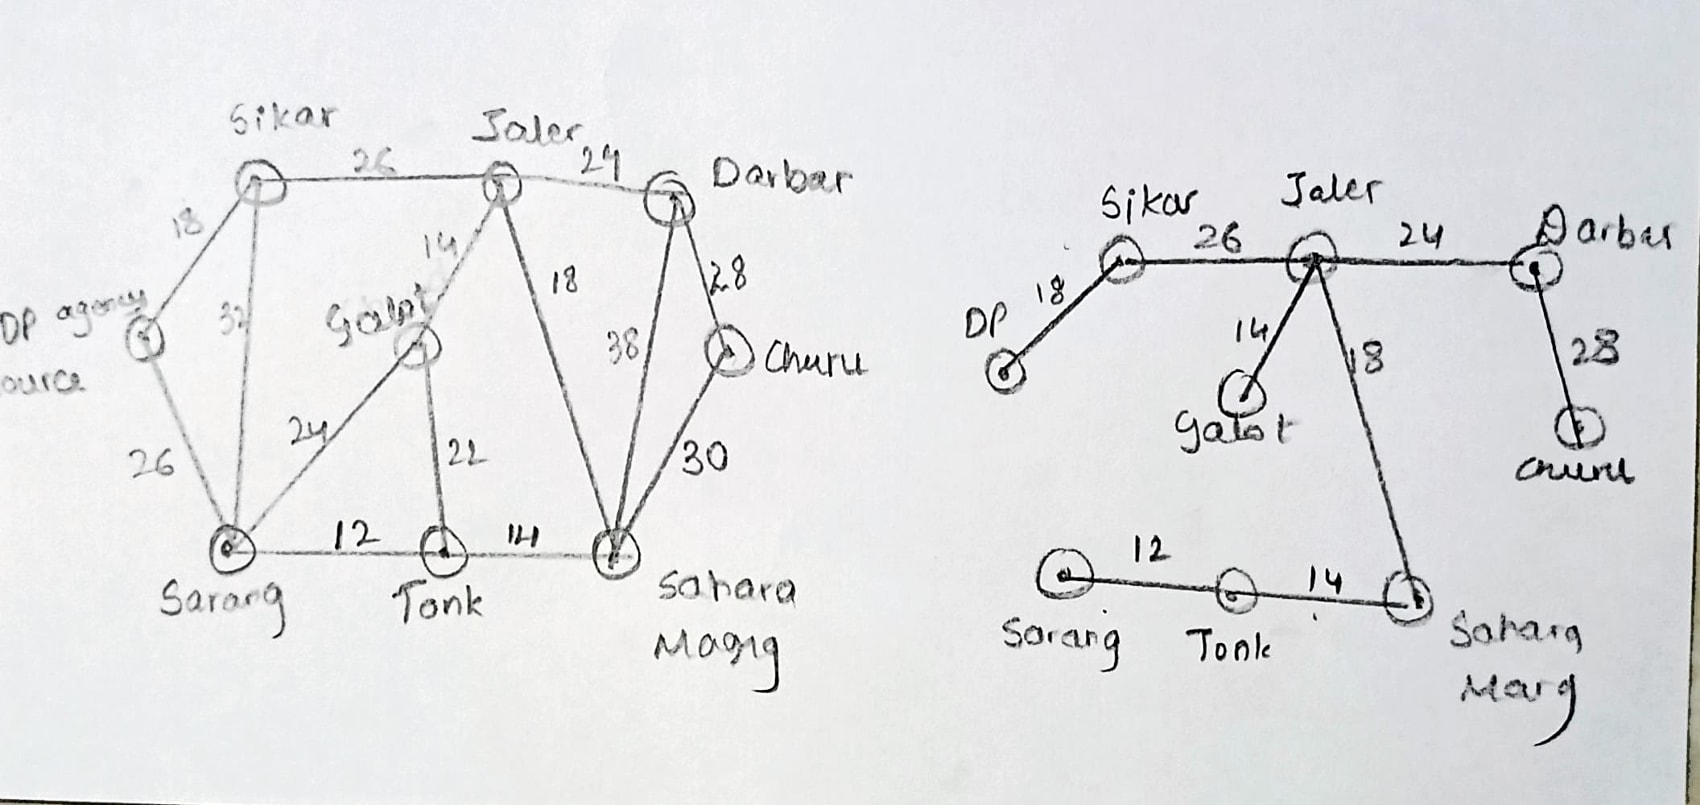 Sikar
Jaler
26
24
Darbar
18
14
DP agency
ource
32
Galot
18
28
38
Churu
26
24
22
30
12
14
Sarang
Tonk
Sahara
Marg
Sikar
Jaler
26
24
Darbar
DP
18
14
18
28
Galot
churu
12
14
Sarang
Tonk
Sahara
Marg